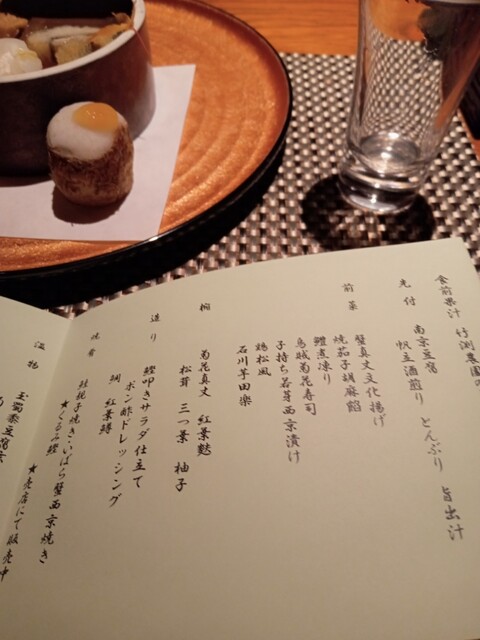 食前果汁 竹渕農園の
先付 南京豆腐 とんぶり 旨出汁
帆立酒煎り
前菜 蟹真丈文化揚げ
焼茄子胡麻餡
鱧煮凍り
烏賊菊花寿司
子持ち若芽西京漬け
鶏松風
石川芋田楽
椀 菊花真丈 紅葉麩
松茸 三つ葉 柚子
造り 鰹叩きサラダ仕立て
ポン酢ドレッシング
鯛 紅葉鱒
焼肴 鮭親子焼き いばら蟹西京焼き
★くるみ鰹 ★売店にて販売中
温物 玉蜀黍豆腐